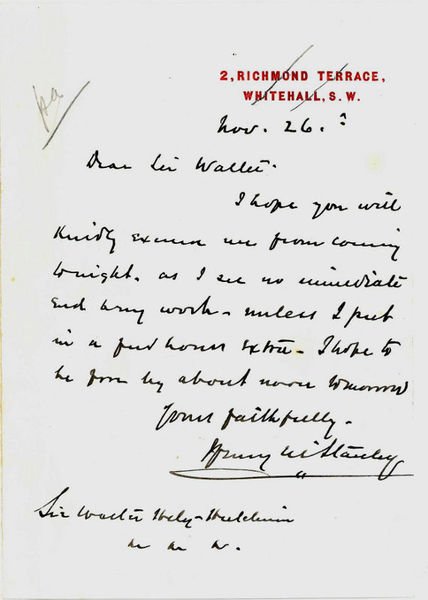 2, RICHMOND TERRACE,
WHITEHALL, S. W.
Nov. 26.
Dear Sir Walter.
I hope you will
kindly excuse me from coming
tonight. as I see no immediate
end to my work - unless I put
in a few hours extra - I hope to
be free by about noon tomorrow
Yours faithfully.
Henry M Stanley
Sir Walter Hely-Hutchinson